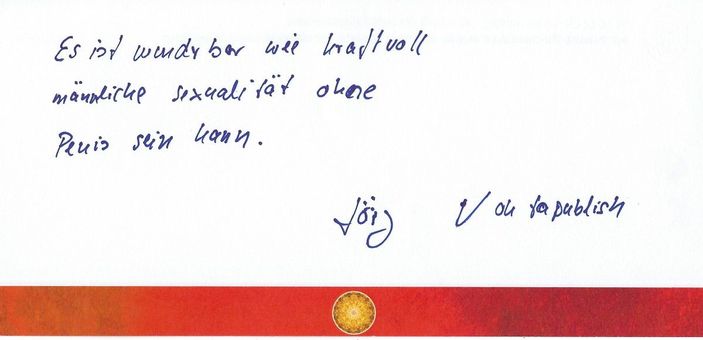 Es ist wunderbar wie kraftvoll
männliche sexualität ohne
Penis sein kann.
Jörg ✓ ok to publish